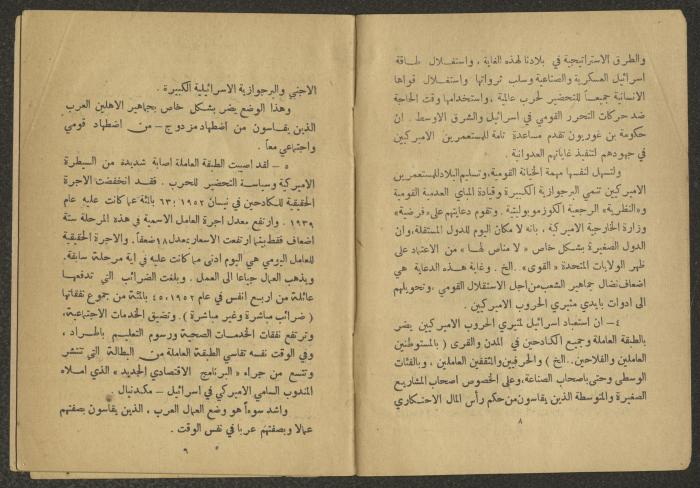 والطرق الاستراتيجية في بلادنا لهذه الغاية ، واستغلال طاقة
اسرائيل العسكرية والصناعية وسلب ثرواتها واستغلال قواها
الانسانية جميعاً للتحضير لحرب عالمية ، واستخدامها وقت الحاجة
ضد حركات التحرر القومي في اسرائيل والشرق الاوسط . ان
حكومة بن غوريون تقدم مساعدة تامة للمستعمرين الاميركيين
في جهودهم لتنفيذ غاياتهم العدوانية .
ولتسهل لنفسها مهمة الخيانة القومية ، وتسليم البلاد للمستعمرين
الاميركيين تنمي البرجوازية الكبيرة وقيادة المباي العدمية القومية
و«النظرية» الرجعية الكوزموبوليتية . وتقوم دعايتهم على «فرضية»
وزارة الخارجية الاميركية ، بانه لا مكان اليوم للدول المستقلة ، وان
الدول الصغيرة بشكل خاص « لا مناص لها » من الاعتماد على
ظهر الولايات المتحدة « القوي » . الخ . وغاية هذه الدعاية هي
اضعاف نضال جماهير الشعب من أجل الاستقلال القومي ، وتحويلهم
الى ادوات بايدي مثيري الحروب الاميركيين .
٤ – ان استعباد اسرائيل لمثيري الحروب الاميركيين يضر
بالطبقة العاملة وجميع الكادحين في المدن والقرى ( بالمستوطنين
العاملين والفلاحين .. الخ ) والحرفيين والمثقفين العاملين ، وبالفئات
الوسطى وحتى باصحاب الصناعة ، وعلى الخصوص اصحاب المشاريع
الصغيرة والمتوسطة الذين يقاسون من حكم رأس المال الاحتكاري
٨
الاجنبي والبرجوازية الاسرائيلية الكبيرة .
وهذا الوضع يضر بشكل خاص بجماهير الاهلين العرب
الذين يقاسون من اضطهاد مزدوج – من اضطهاد قومي
واجتماعي معاً .
٥ – لقد اصيبت الطبقة العاملة اصابة شديدة من السيطرة
الاميركية وسياسة التحضير للحرب . فقد انخفضت الاجرة
الحقيقية للكادحين في نيسان ١٩٥٢ ، ٦٣ بالمئة عما كانت عليه عام
١٩٣٩ . وارتفع معدل اجرة العامل الاسمية في هذه المرحلة ستة
اضعاف فقط بينما ارتفعت الاسعار بمعدل ١٨ ضعفاً . والاجرة الحقيقية
للعامل اليومي هي اليوم ادنى مما كانت عليه في اية مرحلة سابقة .
ويذهب العمال جياعا الى العمل . وبلغت الضرائب التي تدفعها
عائلة من اربع انفس في عام ١٩٥٢ ، ٤٥ بالمئة من مجموع نفقاتها
( ضرائب مباشرة وغير مباشرة ) . وتضيق الخدمات الاجتماعية ،
وترتفع نفقات الخدمات الصحية ورسوم التعليم باطراد ،
وفي الوقت نفسه تقاسي الطبقة العاملة من البطالة التي تنتشر
وتتسع من جراء « البرنامج الاقتصادي الجديد » الذي املاه
المندوب السامي الاميركي في اسرائيل – مكدنيال .
واشد سوءاً هو وضع العمال العرب ، الذين يقاسون بصفتهم
عمالا وبصفتهم عربا في نفس الوقت .
٩